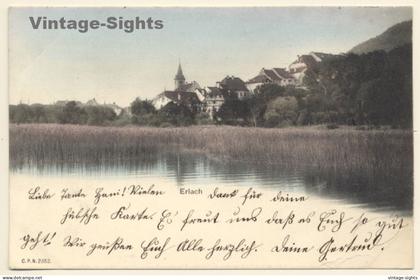 Vintage-Sights
Erlach
Liebe Tante Hani! Vielen Dank für deine
hübsche Karte. Es freut uns daß es Euch so gut
geht! Wir grüßen Euch Alle herzlich. Deine Gertrud.
C. P. N. 2652.
vintage-sights.com